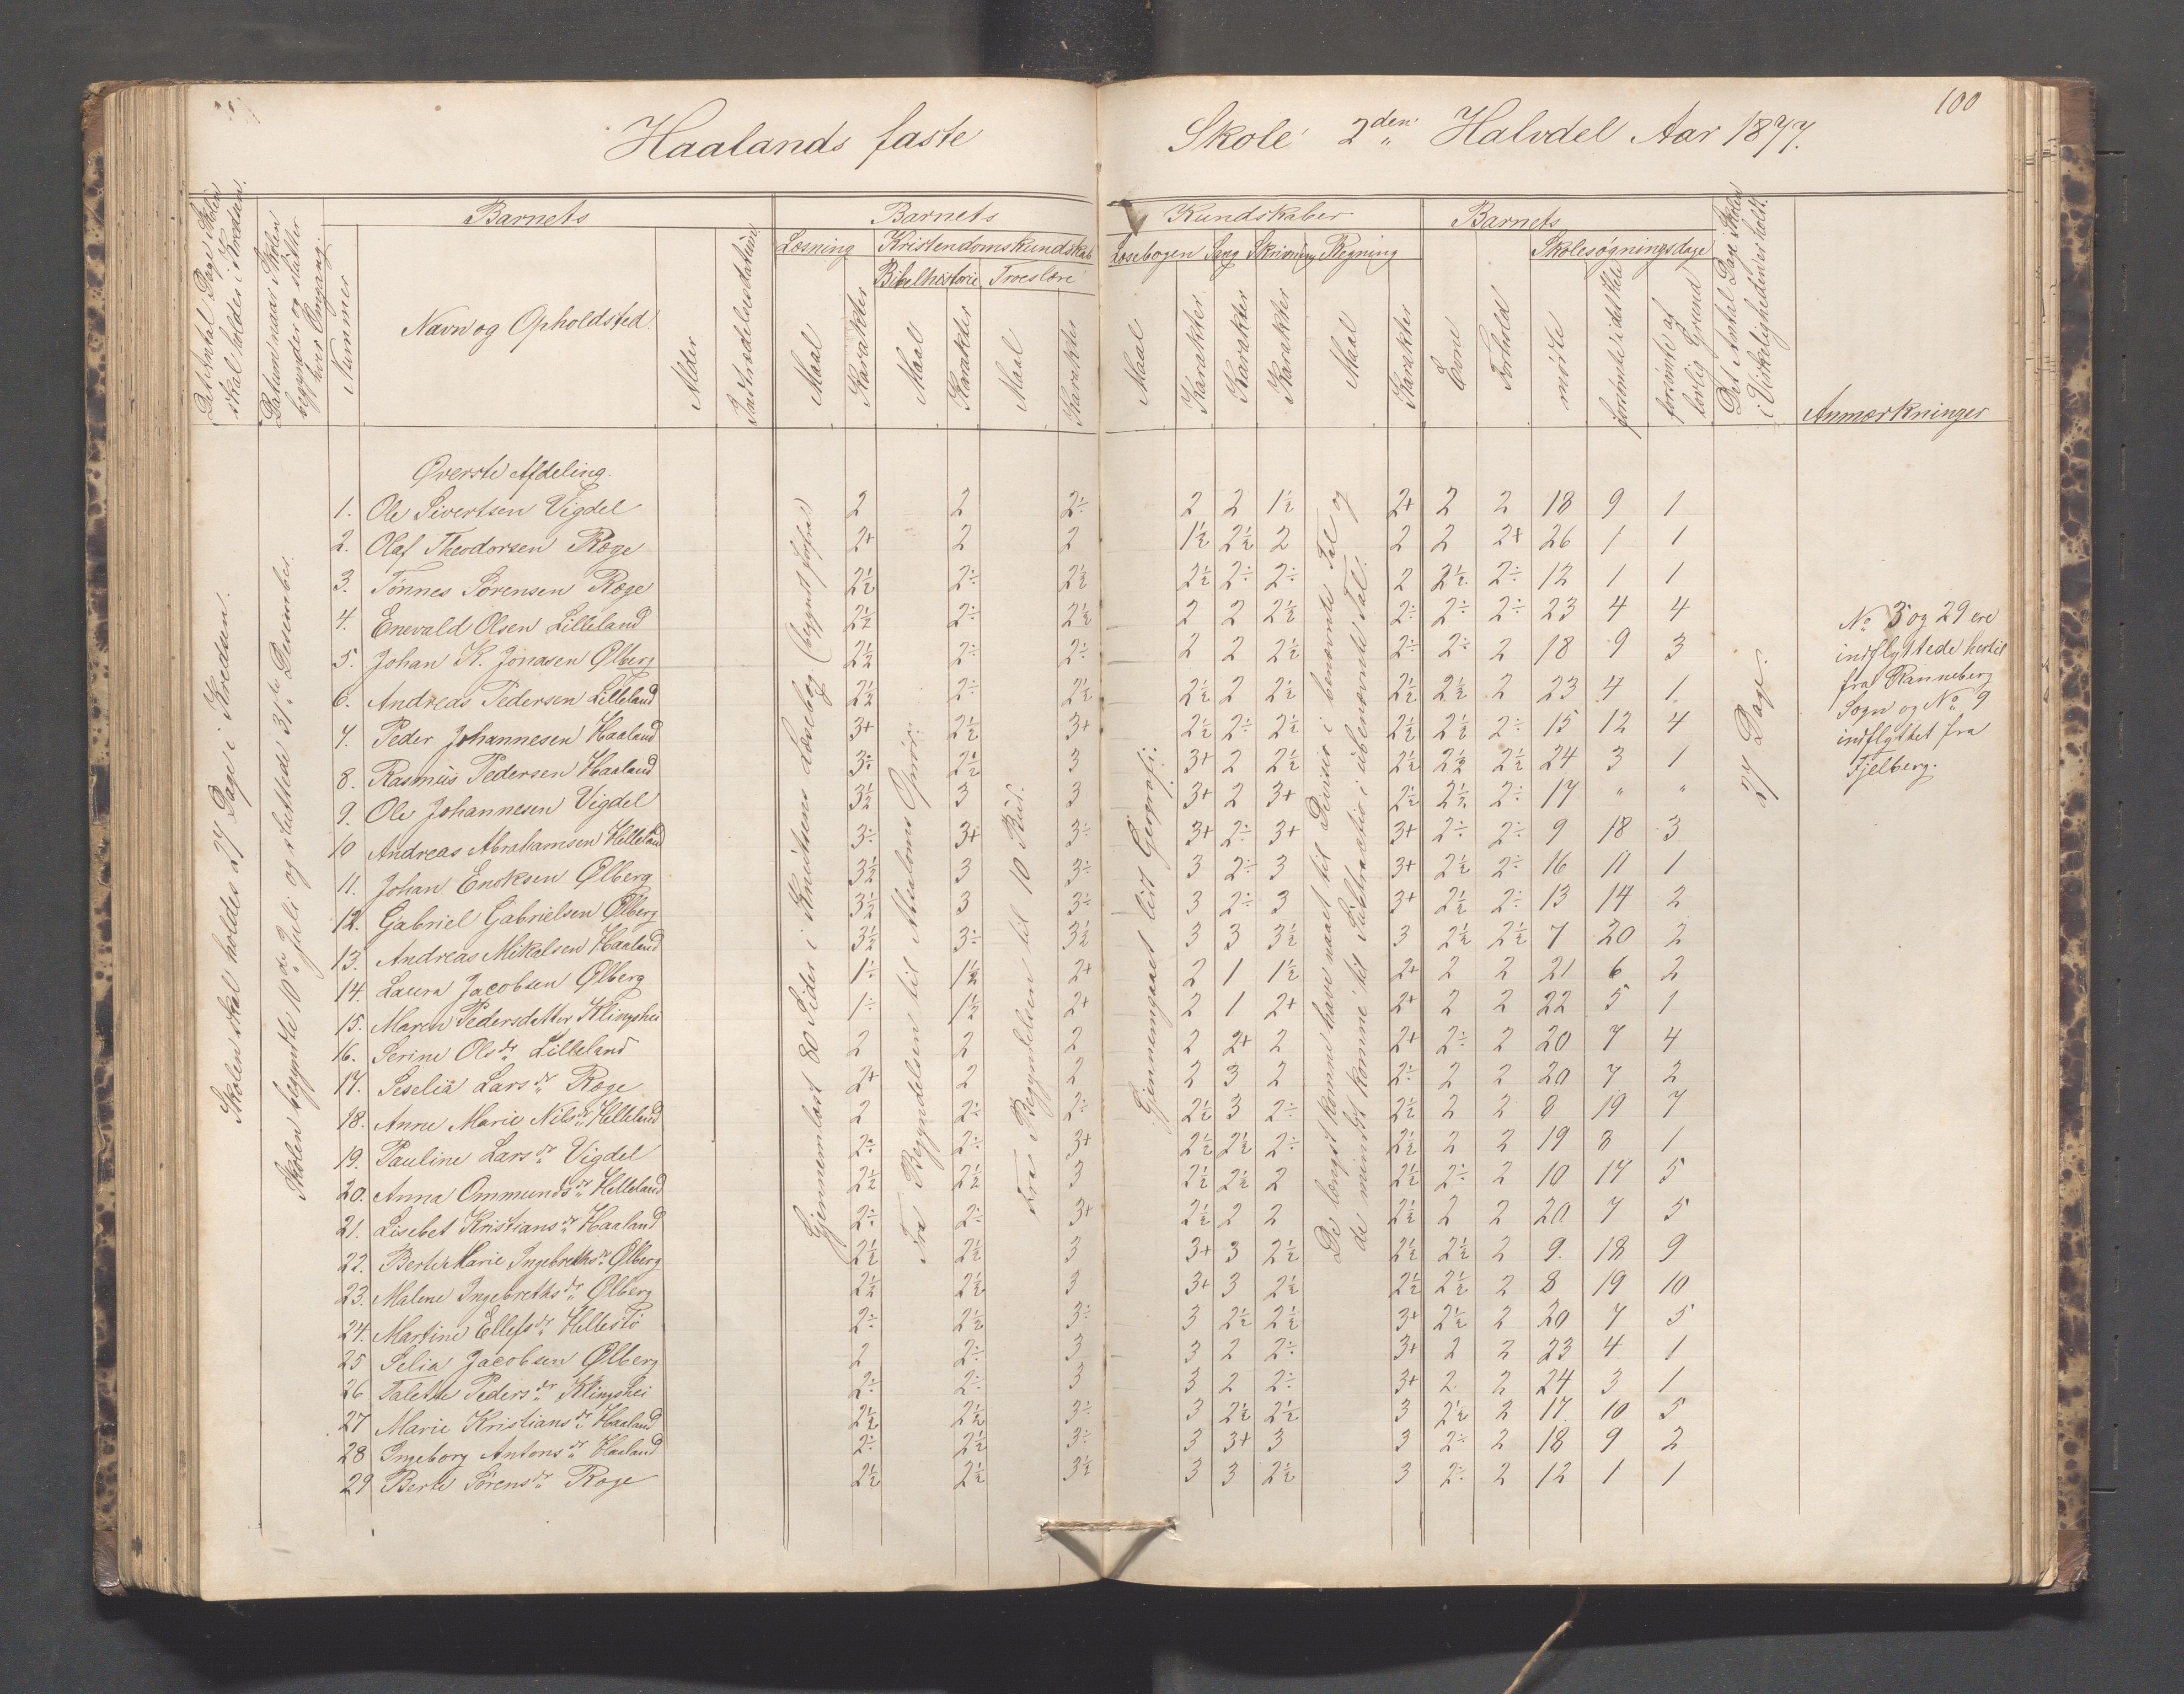 100
Haalands faste Skole 2den Halvdel Aar 1877.
Det Antal Dage Skolen skal holdes i Kredsen.
Datum naar Skolen begynder og slutter hver Omgang.
Nummer
Barnets
Navn og Opholdsted.
Alder
Indtrædelsesdatum.
Barnets Kundskaber
Læsning
Kristendomskundskab
Bibelhistorie
Troeslære
Læsebogen
Sang
Skrivning
Regning
Maal
Karakter
Maal
Karakter
Maal
Karakter
Maal
Karakter
Karakter
Karakter
Maal
Karakter
Barnets
Evne
Forhold
Skolesøgningsdage
mødte
forsømte i det Hele
forsømte af lovlig Grund
Det Antal Dage Skolen i Virkeligheden er holdt.
Anmærkninger
Skolen skal holdes 27 Dage i Kredsen.
Skolen begyndte 10de Juli og sluttede 31te Desember.
Gjennemlæst 80 Sider i Knudsens Læsebog
Fra Begyndelsen til Absaloms Oprør.
Fra Begyndelsen til 10 Bud.
Gjennemgaaet lidt Geografi.
De længst komne have naaet til Division i benævnte Tal og
de mindst komne til Subtraction i ubenævnte Tal.
27 Dage.
Øverste Afdeling.
1. Ole Sivertsen Vigdel 2 2 2÷ 2 2 1½ 2+ 2 2 18 9 1
2. Olaf Theodorsen Røge 2+ 2 2 1½ 2½ 2 2 2 2+ 26 1 1
3. Tønnes Sørensen Røge 2½ 2÷ 2½ 2½ 2÷ 2÷ 2 2½ 2÷ 12 1 1
4. Enevald Olsen Lilleland 2½ 2÷ 2½ 2 2 2½ 2÷ 2÷ 2÷ 23 4 4
5. Johan K. Jonasen Ølberg 2½ 2÷ 2÷ 2 2 2½ 2÷ 2÷ 2 18 9 3
6. Andreas Pedersen Lilleland 2½ 2÷ 2½ 2½ 2 2½ 2½ 2½ 2 23 4 1
7. Peder Johannesen Haaland 3+ 2½ 3+ 2½ 2÷ 2½ 2½ 2½ 2÷ 15 12 4
8. Rasmus Pedersen Haaland 3÷ 2½ 3 3+ 2 2½ 2½ 2½ 2½ 24 3 1
9. Ole Johannesen Vigdel 3½ 3 3 3+ 2 3+ 2½ 2½ 2÷ 17 " "
10 Andreas Abrahamsen Helleland 3÷ 3+ 3÷ 3+ 2÷ 3+ 3+ 2÷ 2÷ 9 18 3
11. Johan Enoksen Ølberg 3½ 3 3÷ 3 2÷ 3 3+ 2½ 2÷ 16 11 1
12. Gabriel Gabrielsen Ølberg 3½ 3 3÷ 3 2÷ 3 3+ 2½ 2÷ 13 14 2
13. Andreas Mikalsen Haaland 3½ 3÷ 3½ 3 3 3½ 3 2½ 2½ 7 20 2
14. Laura Jacobsen Ølberg 1÷ 1½ 2+ 2 1 1½ 2+ 2 2 21 6 2
15. Maren Pedersdatter Klingshei 1÷ 1½ 2+ 2 1 2+ 2+ 2 2 22 5 1
16. Serine Olsdr Lilleland 2 2 2 2 2+ 2 2+ 2÷ 2 20 7 4
17. Seselia Larsdr Røge 2+ 2 2 2 3 2 2÷ 2 2 20 7 2
18. Anne Marie Nilsdr Helleland 2 2÷ 2÷ 2½ 3 2÷ 2½ 2 2 8 19 7
19. Pauline Larsdr Vigdel 2÷ 2÷ 3+ 2½ 2½ 2÷ 2½ 2 2 19 8 1
20. Anna Ommundsdr Helleland 2½ 2½ 3 2½ 2½ 2 2½ 2÷ 2 10 17 5
21. Lisebet Kristiansdr Haaland 2÷ 2÷ 3+ 2½ 2 2 2½ 2 2 20 7 5
22. Berte Marie Ingebrethsdr Ølberg 2½ 2½ 3 3+ 3 2½ 2½ 2½ 2 9 18 9
23. Malene Ingebrethsdr Ølberg 2½ 2½ 3 3+ 3 2½ 2½ 2½ 2 8 19 10
24. Martine Ellefsdr Hellestö 2÷ 2½ 3÷ 3 2½ 2½ 3+ 2½ 2 20 7 5
25 Selia Jacobsen Ølberg 2 2÷ 3 3 2 2÷ 3+ 2 2 23 4 1
26 Talette Pedersdr Klingshei 2÷ 2÷ 3 3 2 2÷ 3+ 2 2 24 3 1
27 Marie Kristiansdr Haaland 2½ 2½ 3÷ 3 2½ 2½ 3 2½ 2 17 10 5
28 Ingeborg Antonsdr Haaland 2÷ 2½ 3÷ 3 3+ 3 3 2÷ 2 18 9 2
29 Berte Sørensdr Røge 2½ 2½ 3½ 3 3 2½ 3 2÷ 2 12 1 1
No 3 og 29 ere
indflyttede hertil
fra Ranneberg
Sogn og No 9
indflyttet fra
Fjelberg.